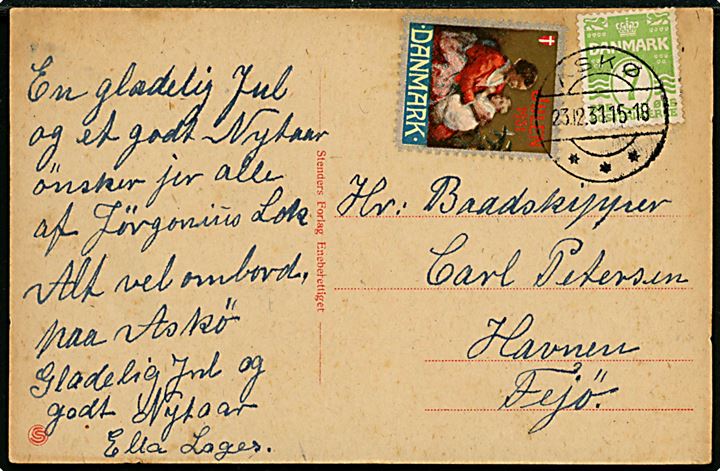 En glædelig Jul
og et godt Nytaar
önsker jer alle
af Jörgonius Lok
Alt vel ombord,
paa Askö
Glædelig Jul og
godt Nytaar
Ella Lages.
Stenders Forlag Eneberettiget
DANMARK
JULEN
1931
DANMARK
7
ASKØ
23.12.31.15-18
Hr: Baadskipper
Carl Petersen
Havnen
Fejö.